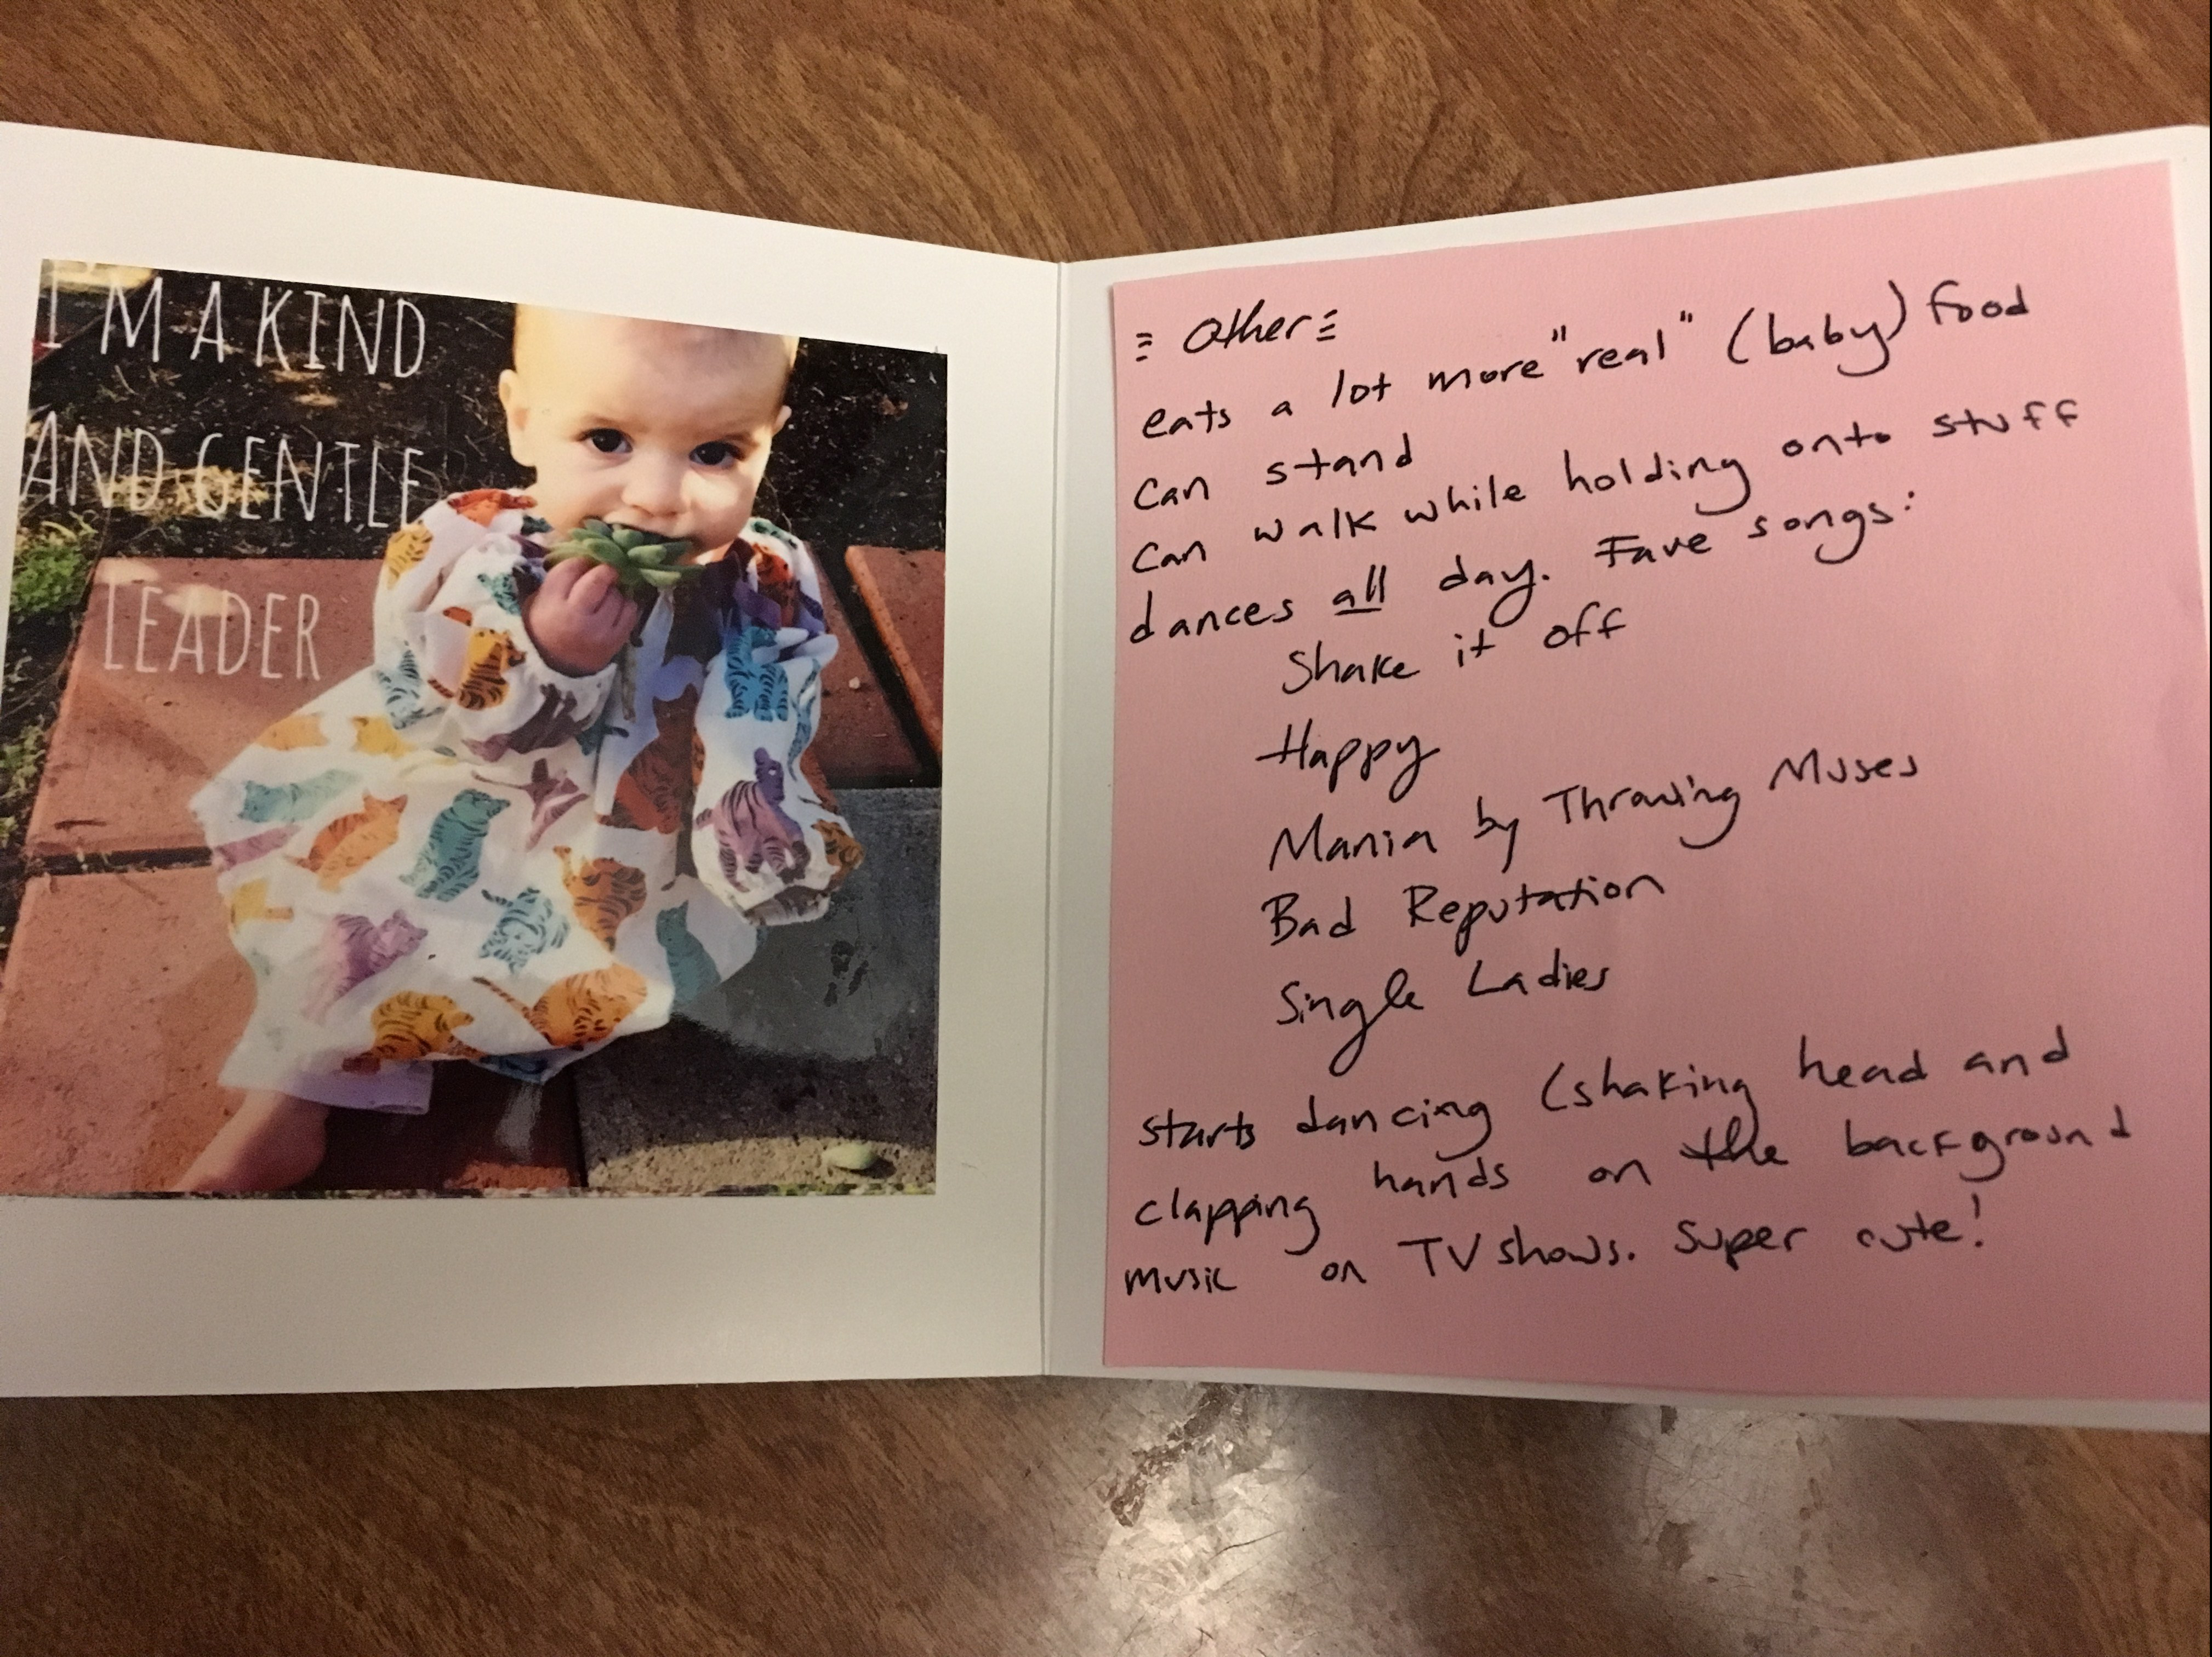 I'M A KIND
AND GENTLE
LEADER
Other
eats a lot more "real" (baby) food
can stand
can walk while holding onto stuff
dances all day. Fave songs:
Shake it off
Happy
Mania by Throwing Muses
Bad Reputation
Single Ladies
starts dancing (shaking head and
clapping hands on the background
music on TV shows. Super cute!